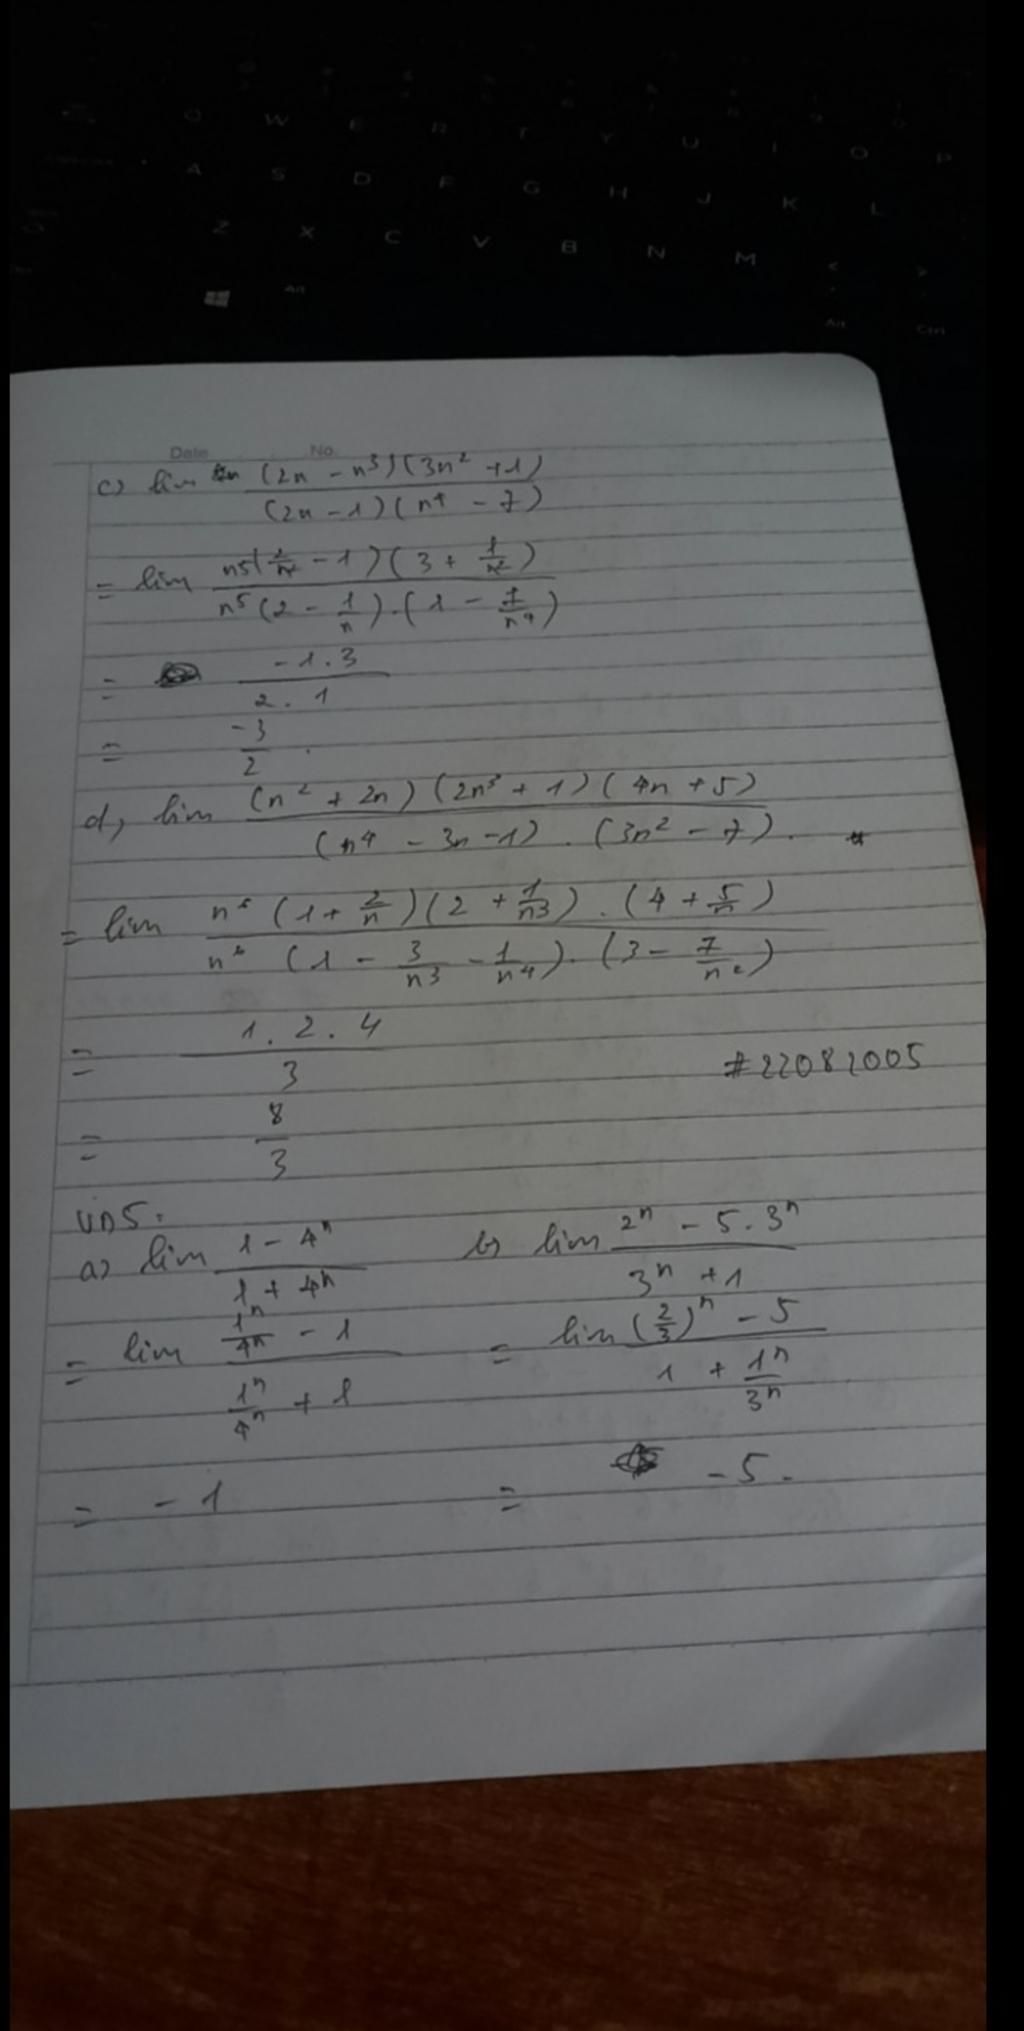 Q W E R T Y U I O P
A S D F G H J K L
Z X C V B N M < >
Alt Alt Ctrl
Date No.
c) lim (2n - n³)(3n² + 1)
(2n - 1)(n⁴ - 7)
= lim n⁵(2/n² - 1)(3 + 1/n²)
n⁵(2 - 1/n).(1 - 7/n⁴)
= -1.3
2.1
= -3/2.
d, lim (n² + 2n)(2n³ + 1)(4n + 5)
(n⁴ - 3n - 1).(3n² - 7).
= lim n⁶(1 + 2/n)(2 + 1/n³).(4 + 5/n)
n⁶(1 - 3/n³ - 1/n⁴).(3 - 7/n²)
= 1.2.4
3
#22082005
= 8/3
VD5.
a) lim (1 - 4ⁿ)/(1 + 4ⁿ)
= lim (1ⁿ/4ⁿ - 1)/(1ⁿ/4ⁿ + 1)
= -1
b) lim (2ⁿ - 5.3ⁿ)/(3ⁿ + 1)
= lim ((2/3)ⁿ - 5)/(1 + 1ⁿ/3ⁿ)
= -5.